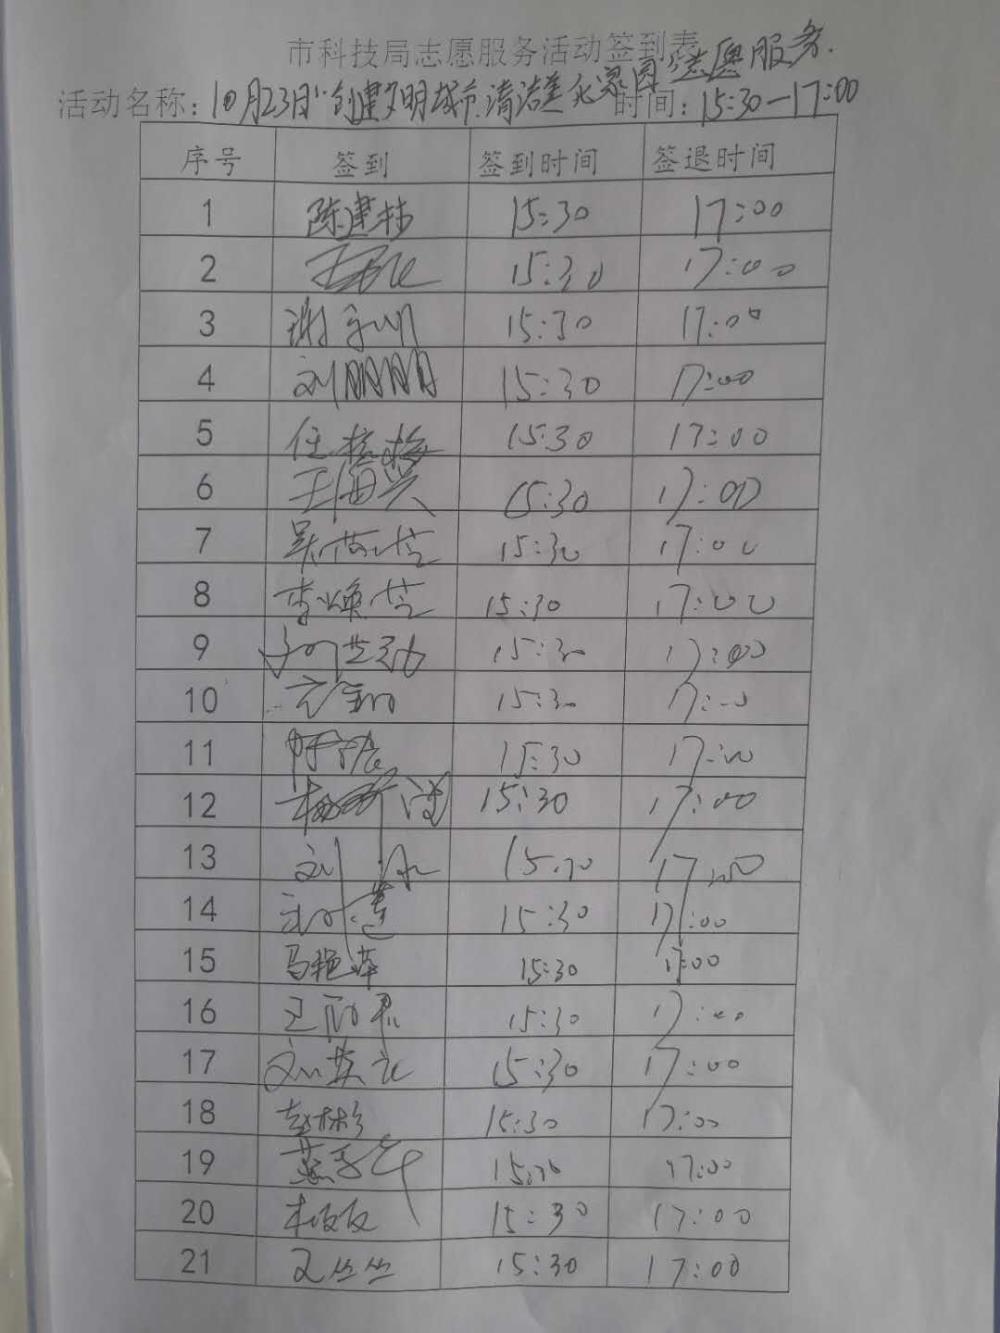 市科技局志愿服务活动签到表
活动名称：10月23日"创建文明城市.清洁美化家园"志愿服务. 时间：15:30—17:00
序号 签到 签到时间 签退时间
1 陈建林 15:30 17:00
2 15:30 17:00
3 谢 15:30 17:00
4 刘朋朋 15:30 17:00
5 任 梅 15:30 17:00
6 王海兴 15:30 17:00
7 15:30 17:00
8 李焕芝 15:30 17:00
9 15:30 17:00
10 15:30 17:00
11 15:30 17:00
12 杨 15:30 17:00
13 刘 15:30 17:00
14 15:30 17:00
15 马艳萍 15:30 17:00
16 王丽君 15:30 17:00
17 15:30 17:00
18 赵彬彬 15:30 17:00
19 15:30 17:00
20 15:30 17:00
21 15:30 17:00